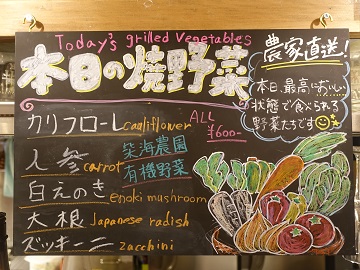 Today's grilled Vegetables
本日の焼野菜
農家直送!
本日、最高においしい
状態で食べられる
野菜たちです
ALL
¥600-
カリフローレ cauliflower
人参 carrot
築海農園
有機野菜
白えのき enoki mushroom
大根 Japanese radish
ズッキーニ zacchini